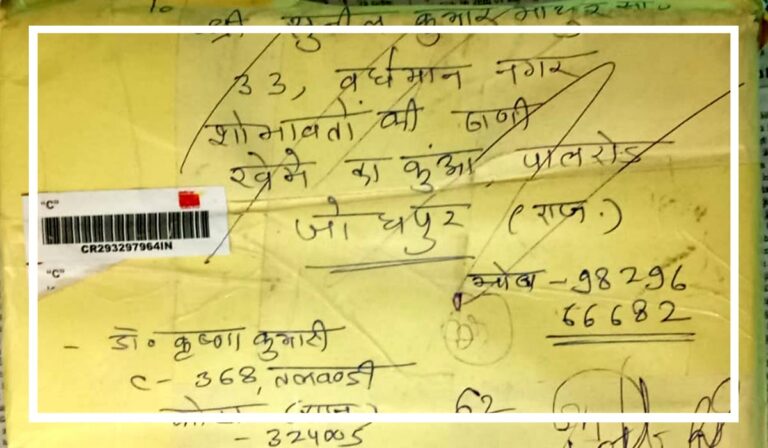 To
श्री सुनील कुमार माथुर सा.
33, वर्धमान नगर
शोभावतों की ढाणी
खेमे का कुंआ, पालरोड
जोधपुर (राज.)
मोबा - 98296
66682
"C"
CR293297964IN
"C"
- डॉ. कृष्णा कुमारी
C - 368, तलवण्डी
कोटा (राज.)
- 324005
62